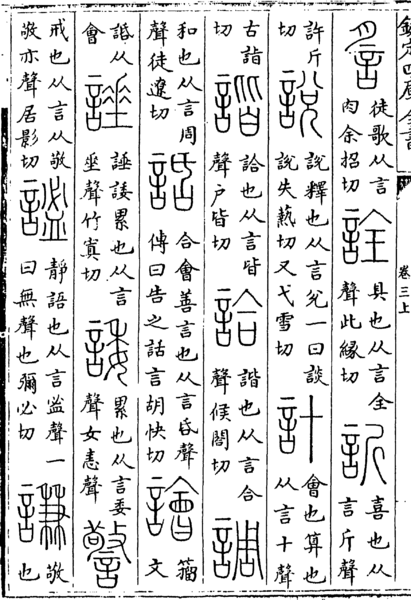 欽定四庫全書 卷三上
䚻 徒歌从言肉余招切 詮 具也从言全聲此緣切 訢 喜也从言斤聲
許斤切 說 說釋也从言兌一曰談說失爇切又弋雪切 計 會也算也从言十聲
古詣切 諧 詥也从言皆聲户皆切 詥 諧也从言合聲候閤切 調
和也从言周聲徒遼切 話 合會善言也从言昏聲傳曰告之話言胡快切 譮 籀文
話从會 諈 諈諉累也从言坐聲竹寘切 諉 累也从言委聲女恚聲 警
戒也从言从敬敬亦聲居影切 謐 靜語也从言監聲一曰無聲也彌必切 謙 敬也